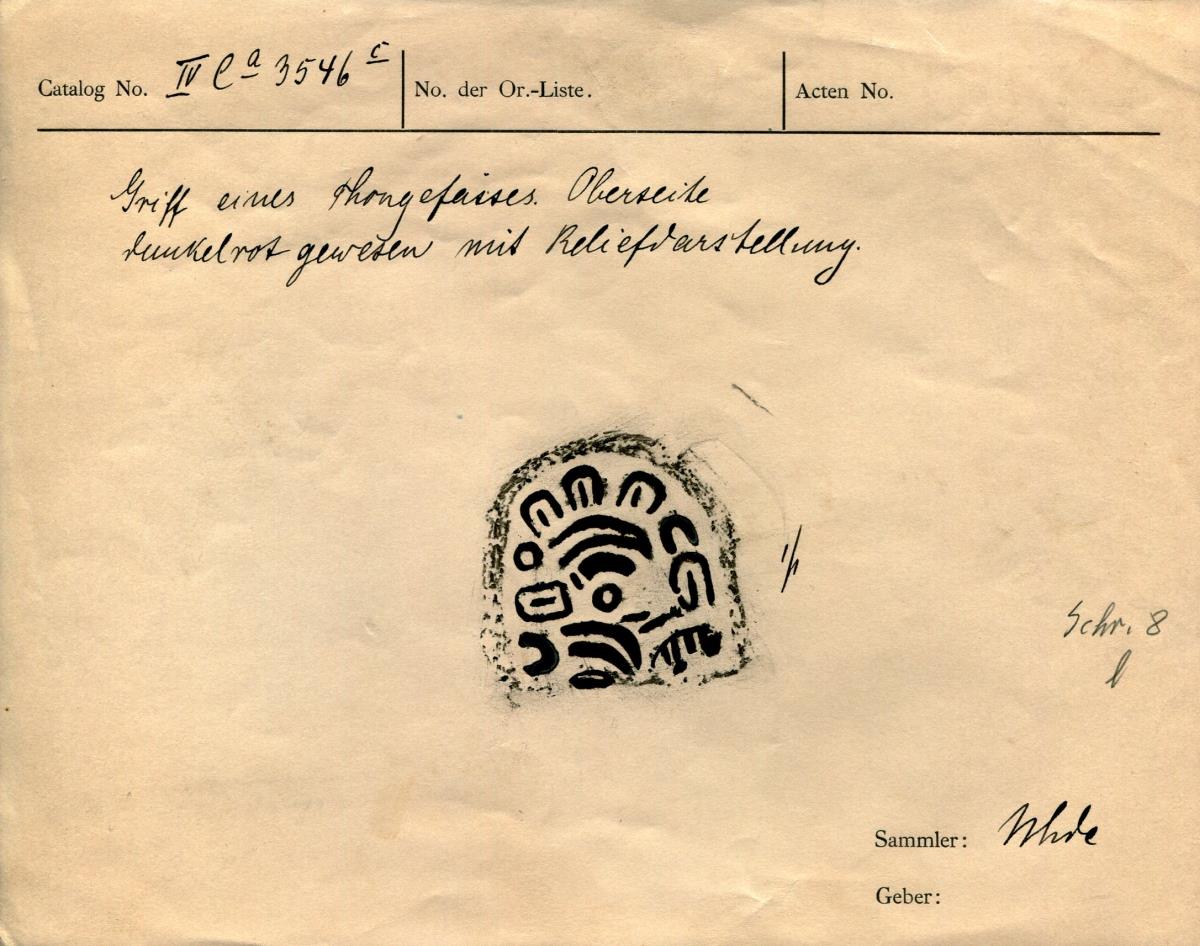 Catalog No. IV Ca 3546 c
No. der Or.-Liste.
Acten No.
Griff eines Thongefässes. Oberseite
dunkelrot gewesen mit Reliefdarstellung.
1/1
Schr. 8
l
Sammler: Uhde
Geber: